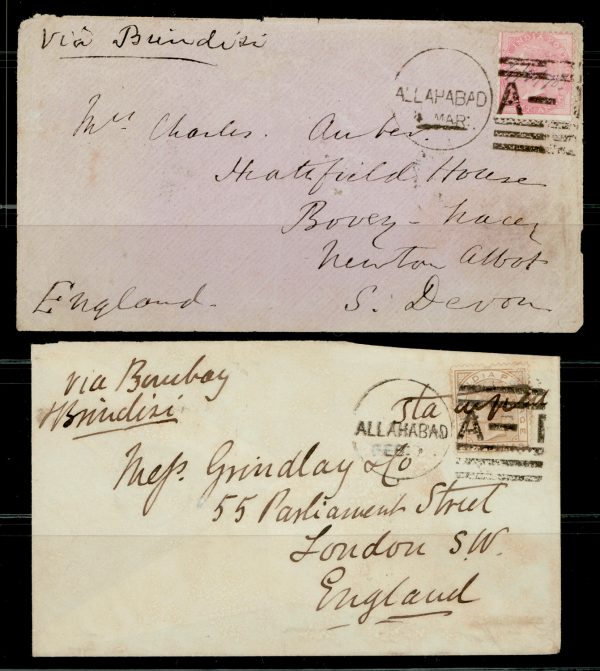 Via Brindisi
ALLAHABAD
MAR
A-
Mrs Charles. Auber
Heathfield House
Bovey-Tracey
Newton Abbot
England. S. Devon
via Bombay
& Brindisi
stamped
ALLAHABAD
FEB
A-
Messrs Grindlay & Co
55 Parliament Street
London S.W.
England